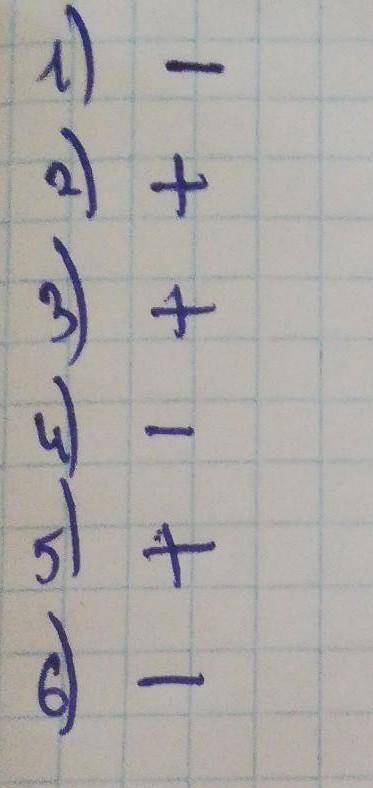 1) -
2) +
3) +
4) -
5) +
6) -